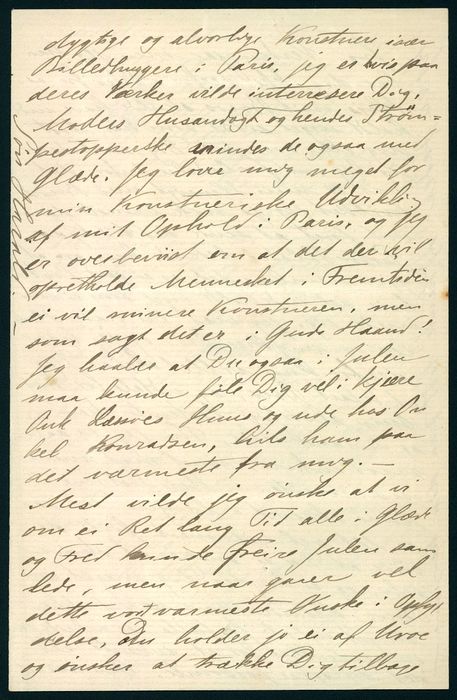 dygtige og alvorlige Konstnere især
Billedhuggere i Paris, jeg er vis paa
deres Værker vilde interresere Dig,
Moders Husandagt og hendes Strøm=
pestopperske mindes de ogsaa med
Glæde. Jeg lover mig meget for
min Konstneriske Udvikling
af mit Ophold i Paris, og jeg
er overbeviist om at det der vil
opretholde Mennesket i Fremtiden
ei vil minere Konstneren, men
som sagt det er i Guds Haand!
Jeg haaber at Du ogsaa i Julen
maa kunde føle Dig vel i kjære
Onk Læssøes Huus og ude hos On
kel Konradsen, hils ham paa
det varmeste fra mig. —
Mest vilde jeg ønske at vi
om ei Ret lang Tid alle i Glæde
og Fred kunde feire Julen sam
lede, men naar gaaer vel
dette vort varmeste Ønske i Opfyl
delse, Du holder jo ei af Uroe
og ønsker at trække Dig tilbage
Din Harald. —